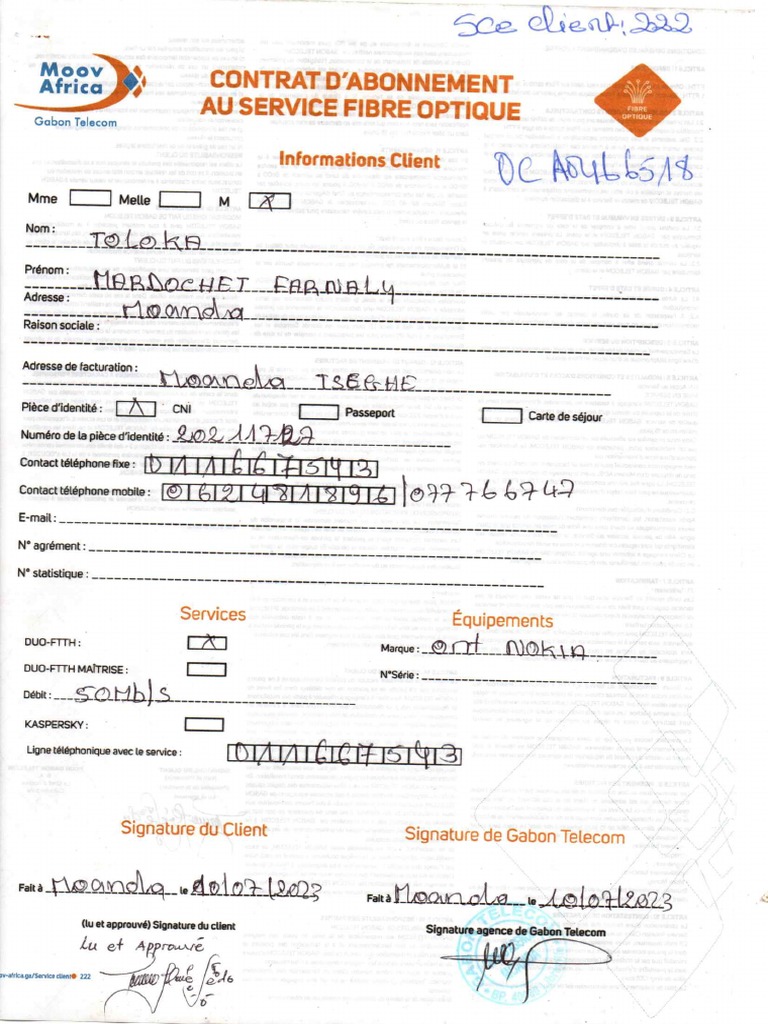 Sce client: 222
Moov
Africa
Gabon Telecom
CONTRAT D'ABONNEMENT
AU SERVICE FIBRE OPTIQUE
FIBRE
OPTIQUE
Informations Client
Mme Melle M X
Nom : TOLOKA
Prénom : MARDOCHET FARNALY
Adresse : Moanda
Raison sociale :
Adresse de facturation : Moanda ISEGHE
Pièce d'identité : X CNI Passeport Carte de séjour
Numéro de la pièce d'identité :
Contact téléphone fixe : 011667543
Contact téléphone mobile : 062481896 / 077766747
E-mail :
N° agrément :
N° statistique :
Services
Équipements
DUO-FTTH : X
Marque : ont NOKIA
DUO-FTTH MAÎTRISE :
N°Série :
Débit : 50Mb/s
KASPERSKY :
Ligne téléphonique avec le service : 011667543
Signature du Client
Signature de Gabon Telecom
Fait à Moanda le 10/07/2023
Fait à Moanda le 10/07/2023
(lu et approuvé) Signature du client
Signature agence de Gabon Telecom
Lu et Approuvé
ov-africa.ga/Service client 222